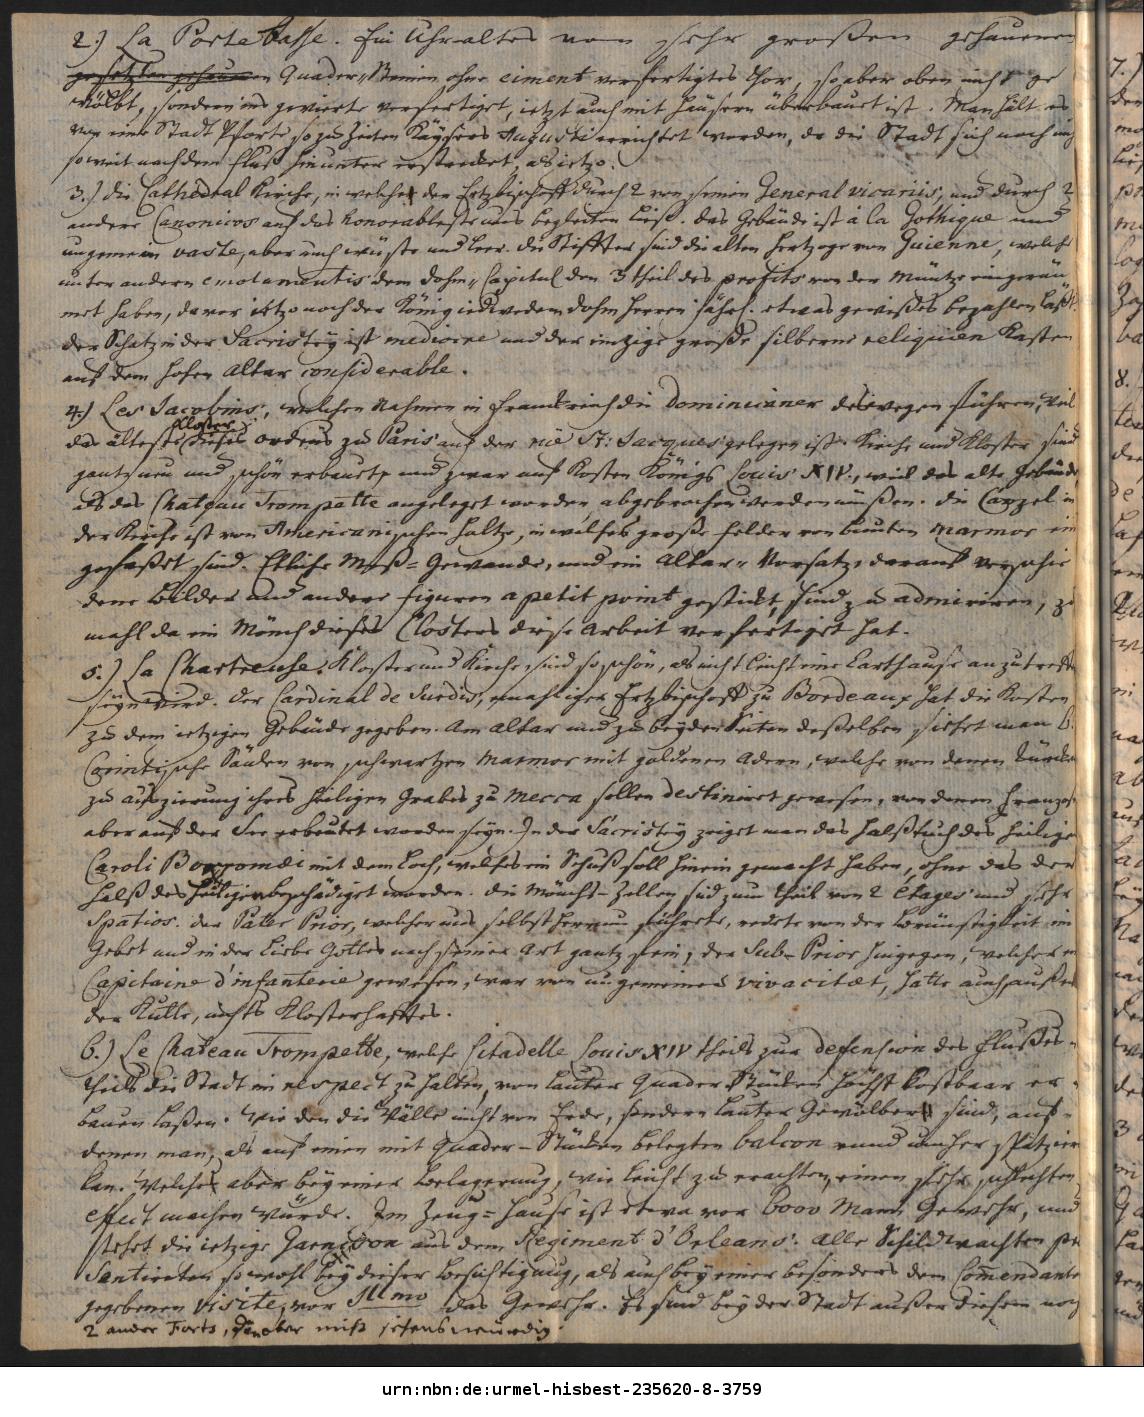 2.) La Porte basse. Ein Uhr-altes von sehr großen gehauenen
Quader-Steinen ohne ciment verfertigtes Thor, so aber oben nicht ge
wölbt, sondern ins gevierte verfertiget, ietzt auch mit Häusern überbauet ist. Man hält es
vor eine Stadt Pforte, so zu Zeiten Kaysers Augusti errichtet worden, da die Stadt sich noch nicht
so weit nach dem Fluß hinunter erstrecket, als ietzo.
3.) Die Cathedral Kirche, in welcher der Ertzbischoff durch 2 von seinen General vicariis, und durch 2
andere Canonicos auf das honorableste uns begleiten ließ. Das Gebäude ist à la Gothique und
ungemein vaste, aber auch wüste und leer. Die Stiffter sind die alten Hertzoge von Guienne, welche
unter andern emolumentis dem Dohm-Capitul den 3 theil des profits von der Müntze eingeräu
met haben, davor ietzo noch der König iedwedem Dohm Herren jährl. etwas gewißes bezahlen läßt.
Der Schatz in der Sacristey ist mediocre und der eintzige große silberne reliquien Kasten
auf dem hohen Altar considerable.
4.) Les Jacobins, welchen Nahmen in Franckreich die Dominicaner deswegen führen, weil
das älteste Kloster dieses Ordens zu Paris auf der rüe St: Jacques gelegen ist. Kirche und Kloster sind
gantz neu und schön erbauet, und zwar auf Kosten Königs Louis XIV., weil das alte Gebäude,
als das Chateau Trompette angeleget worden, abgebrochen werden müßen. Die Cantzel in
der Kirche ist von Americanischen Holtze, in welches große Felder von bunten Marmor ein
gefaßet sind. Etliche Meß-Gewande, und ein Altar-Vorsatz, darauf verschie
dene Bilder und andere Figuren a petit point gestickt, sind zu admiriren, zu
mahl da ein Mönch dieses Closters diese Arbeit verfertiget hat.
5.) La Chartreuse. Kloster und Kirche sind so schön, als nicht leicht eine Carthause anzutreffen
seyn wird. Der Cardinal de Surdis, ehmahliger Ertzbischoff zu Bordeaux hat die Kosten
zu dem ietzigen Gebäude gegeben. Am Altar und zu beyden Seiten deßelben siehet man 6.
Corinthische Säulen von schwartzen Marmor mit goldenen Adern, welche von denen Türcken
zu Auszierung ihres heiligen Grabes zu Mecca sollen destiniret gewesen, von denen Franzosen
aber auf der See erbeutet worden seyn. In der Sacristey zeiget man das Halßtuch des heiligen
Caroli Borromæi mit dem Loch, welches ein Schuß soll hinein gemacht haben, ohne das der
Halß des Heiligen beschädiget worden. Die Mönchs-Zellen sind zum theil von 2 Etages und sehr
spatios. Der Pater Prior, welcher uns selbst herrum führete, redete von der Brünstigkeit im
Gebet und in der Liebe Gottes nach seiner Art gantz fein; der Sub-Prior hingegen, welcher ein
Capitaine d'infanterie gewesen, war von ungemeiner vivacitæt, hatte auch, außer
der Kutte, nichts Klosterhafftes.
6.) Le Chateau Trompette, welche Citadelle Louis XIV theils zur defension des Flußes,
theils die Stadt in respect zu halten, von lauter Quader Stücken höchst kostbaar er-
bauen laßen. Wie den die Wälle nicht von Erde, sondern lauter Gewölber sind, auf-
denen man, als auf einen mit Quader-Stücken belegten balcon rund umher spatziren
kan. Welches aber bey einer Belagerung, wie leicht zu erachten, einen sehr schlechten
effect machen würde. Im Zeug-Hause ist etwa vor 6000 Mann Gewehr, und
stehet die ietzige Garnison aus dem Regiment d'Orleans. Alle Schildwachten præ
sentirten so wohl bey dieser Besichtigung, als auch bey einer besonders dem Commendante
gegebenen visite, vor Illmo das Gewehr. Es sind bey der Stadt außer diesem noch
2 ander Forts, aber nicht sehenswürdig.
urn:nbn:de:urmel-hisbest-235620-8-3759